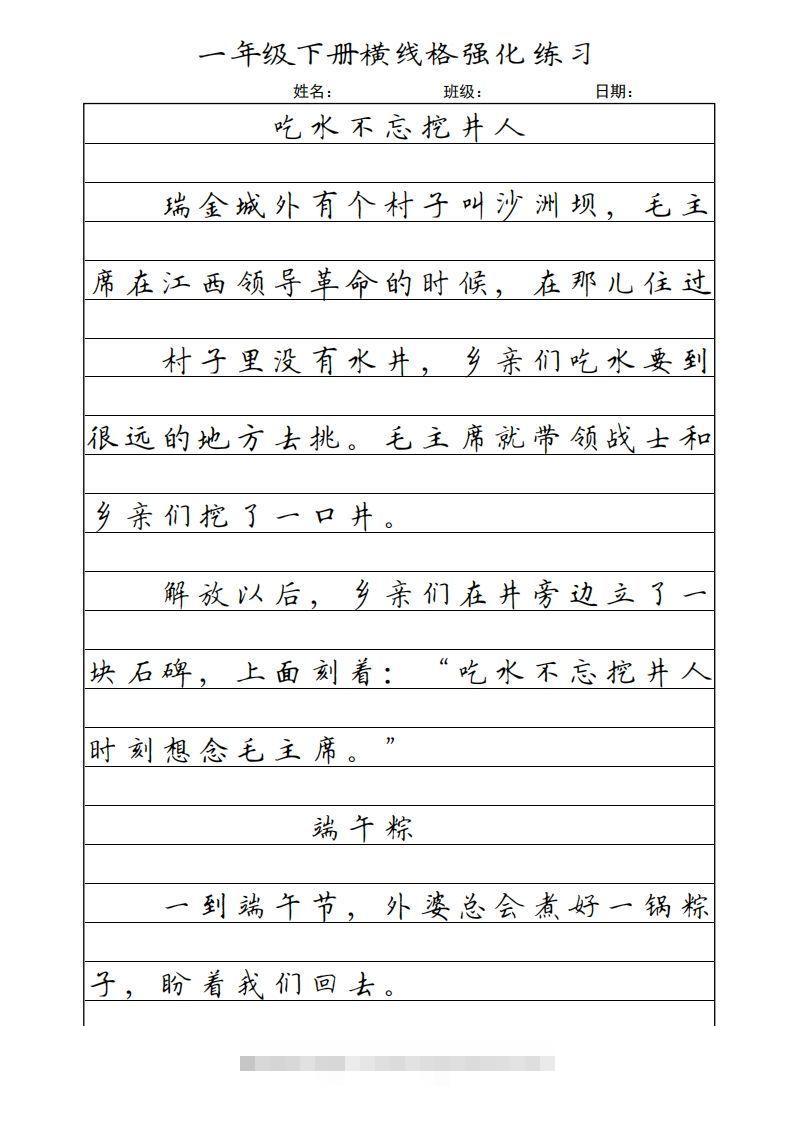 一年级下册横线格强化练习
姓名： 班级： 日期：
吃水不忘挖井人
瑞金城外有个村子叫沙洲坝，毛主
席在江西领导革命的时候，在那儿住过
村子里没有水井，乡亲们吃水要到
很远的地方去挑。毛主席就带领战士和
乡亲们挖了一口井。
解放以后，乡亲们在井旁边立了一
块石碑，上面刻着：“吃水不忘挖井人
时刻想念毛主席。”
端午粽
一到端午节，外婆总会煮好一锅粽
子，盼着我们回去。